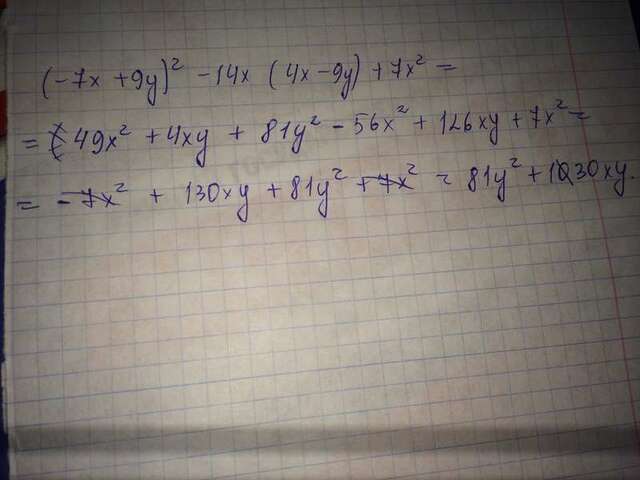 (-7x + 9y)² - 14x (4x - 9y) + 7x² =
= 49x² + 4xy + 81y² - 56x² + 126xy + 7x² =
= -7x² + 130xy + 81y² + 7x² = 81y² + 130xy.